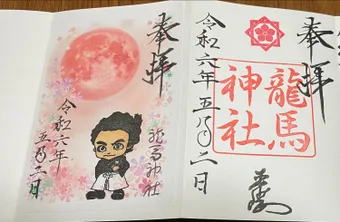 奉拝
龍馬
神社
令和六年五月二日
奉拝
龍馬神社
令和六年
五月二日